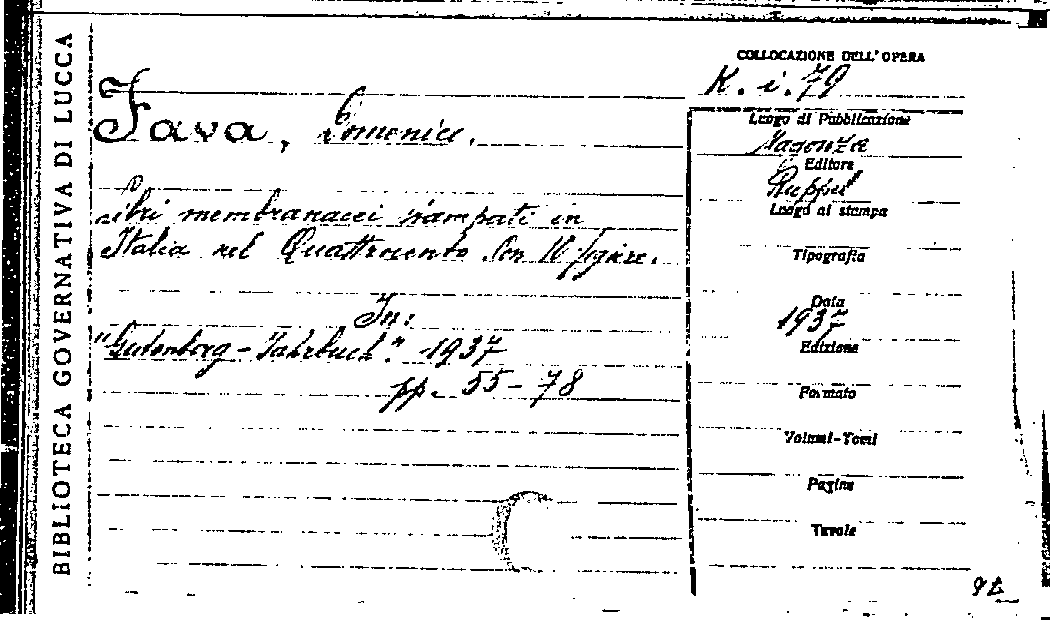 BIBLIOTECA GOVERNATIVA DI LUCCA
COLLOCAZIONE DELL'OPERA
K. i. 79
Fava, Domenico.
Luogo di Pubblicazione
Magonza
Editore
Ruppel
Libri membranacei stampati in
Luogo di stampa
Italia nel Quattrocento. Con 10 figure.
Tipografia
In:
Data
1937
"Gutenberg-Jahrbuch". 1937
Edizione
pp. 55-78
Formato
Volumi-Tomi
Pagine
Tavole